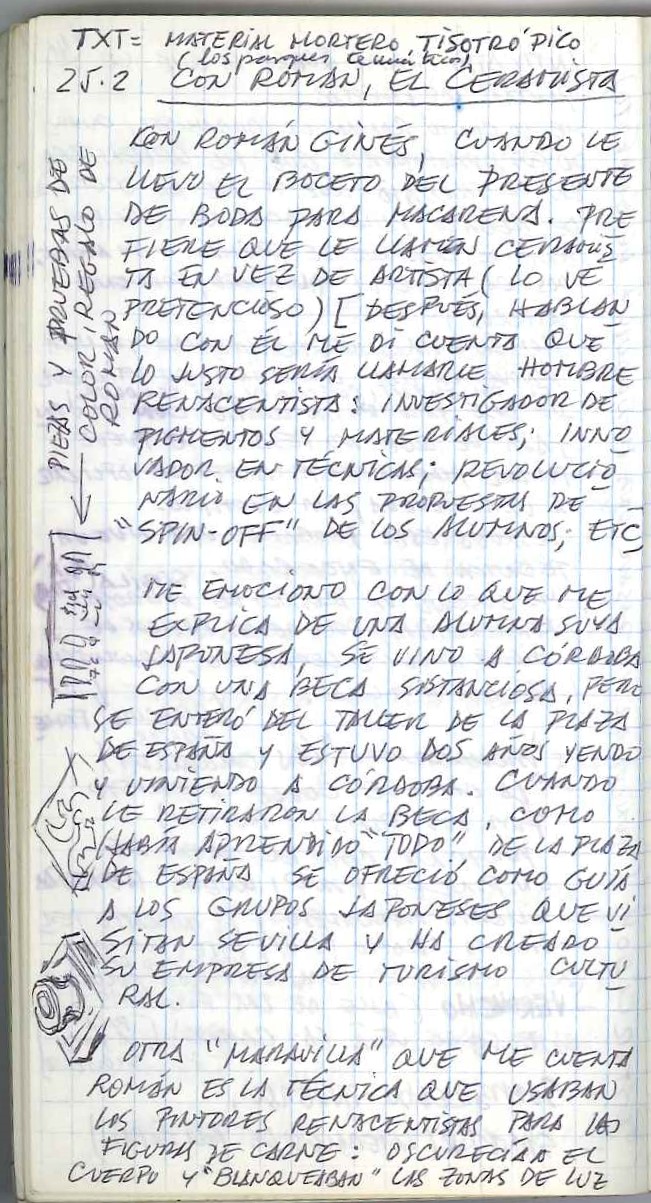 TXT= MATERIAL MORTERO TISOTRÓPICO
(los parques temáticos)
25.2 CON ROMÁN, EL CERAMISTA
CON ROMÁN GINÉS, CUANDO LE
LLEVO EL BOCETO DEL PRESENTE
DE BODA PARA MACARENA. PRE
FIERE QUE LE LLAMEN CERAMIS
TA EN VEZ DE ARTISTA (LO VE
PRETENCIOSO) [DESPUÉS, HABLAN
DO CON ÉL ME DI CUENTA QUE
LO JUSTO SERÍA LLAMARLE HOMBRE
RENACENTISTA: INVESTIGADOR DE
PIGMENTOS Y MATERIALES; INNO
VADOR EN TÉCNICAS; REVOLUCIO
NARIO EN LAS PROPUESTAS DE
"SPIN-OFF" DE LOS ALUMNOS; ETC,
ME EMOCIONO CON LO QUE ME
EXPLICA DE UNA ALUMNA SUYA
JAPONESA, SE VINO A CÓRDOBA
CON UNA BECA SUSTANCIOSA, PERO
SE ENTERÓ DEL TALLER DE LA PLAZA
DE ESPAÑA Y ESTUVO DOS AÑOS YENDO
Y VINIENDO A CÓRDOBA. CUANDO
LE RETIRARON LA BECA, COMO
HABÍA APRENDIDO "TODO" DE LA PLAZA
DE ESPAÑA SE OFRECIÓ COMO GUÍA
A LOS GRUPOS JAPONESES QUE VI
SITAN SEVILLA Y HA CREADO
SU EMPRESA DE TURISMO CULTU
RAL.
OTRA "MARAVILLA" QUE ME CUENTA
ROMÁN ES LA TÉCNICA QUE USABAN
LOS PINTORES RENACENTISTAS PARA LAS
FIGURAS DE CARNE: OSCURECÍAN EL
CUERPO Y "BLANQUEABAN" LAS ZONAS DE LUZ
PIEZAS Y PRUEBAS DE
COLOR, REGALO DE
ROMÁN